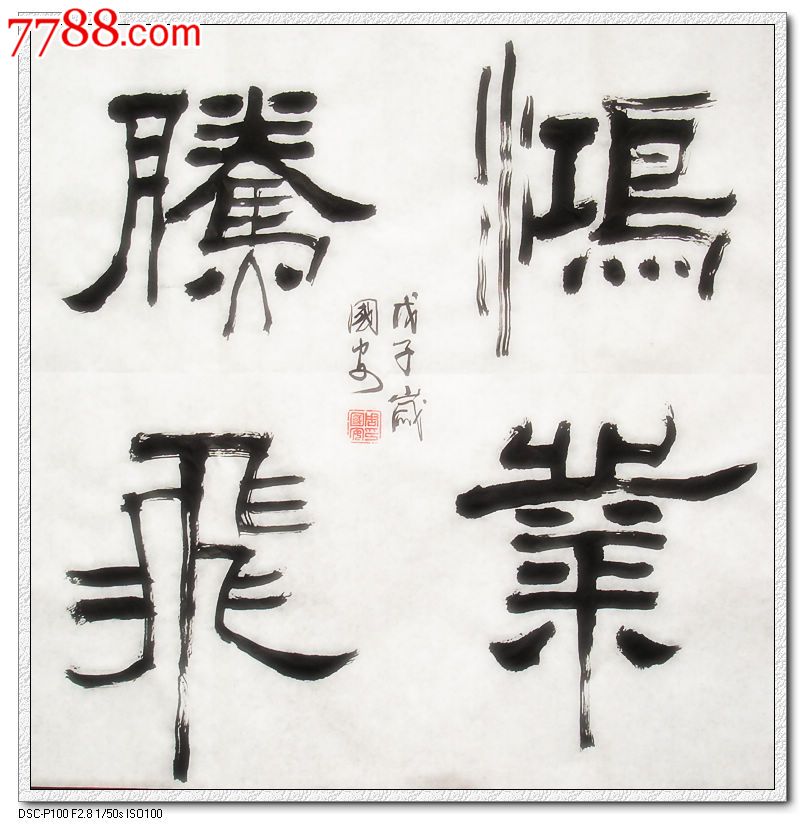 7788.com
鴻業
騰飛
戊子歲
國安
DSC-P100 F2.8 1/50s ISO100